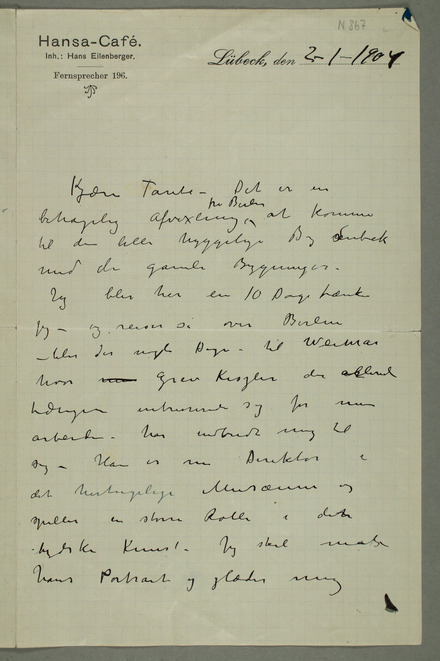 N 867
Hansa-Café.
Inh.: Hans Eilenberger.
Fernsprecher 196.
Lübeck, den 2-1-1904
Kjære Tante – Det er en
behagelig Afvexling fra Berlin at komme
til den lille hyggelige By Lübeck
med de gamle Bygninger.
Jeg blir her en 10 Dage tænker
jeg – og reiser så over Berlin
– blir der nogle Dage – til Weimar
hvor Grev Kessler der allerede
længe interesserer sig for mine
arbeider – har indbudt mig til
sig – Han er nu Direktør i
det hertugelige Musæum og
spiller en større Rolle i det
tydske Kunst. Jeg skal male
hans Portræt og glæder mig